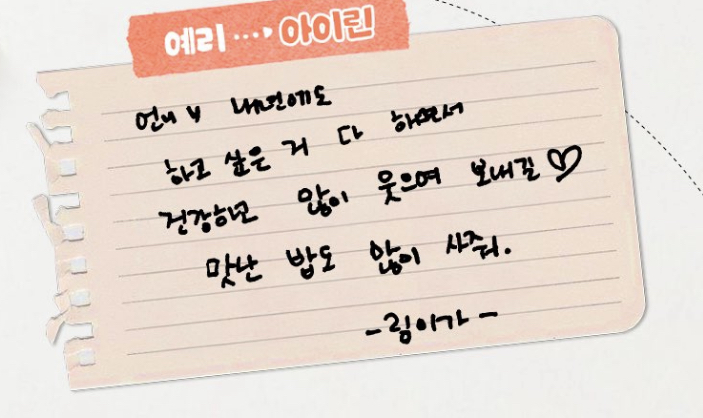 예리 ···▸ 아이린
언니 ∨ 내년에도
하고 싶은 거 다 하면서
건강하고 많이 웃으며 보내길♡
맛난 밥도 많이 사줘.
-림이가-